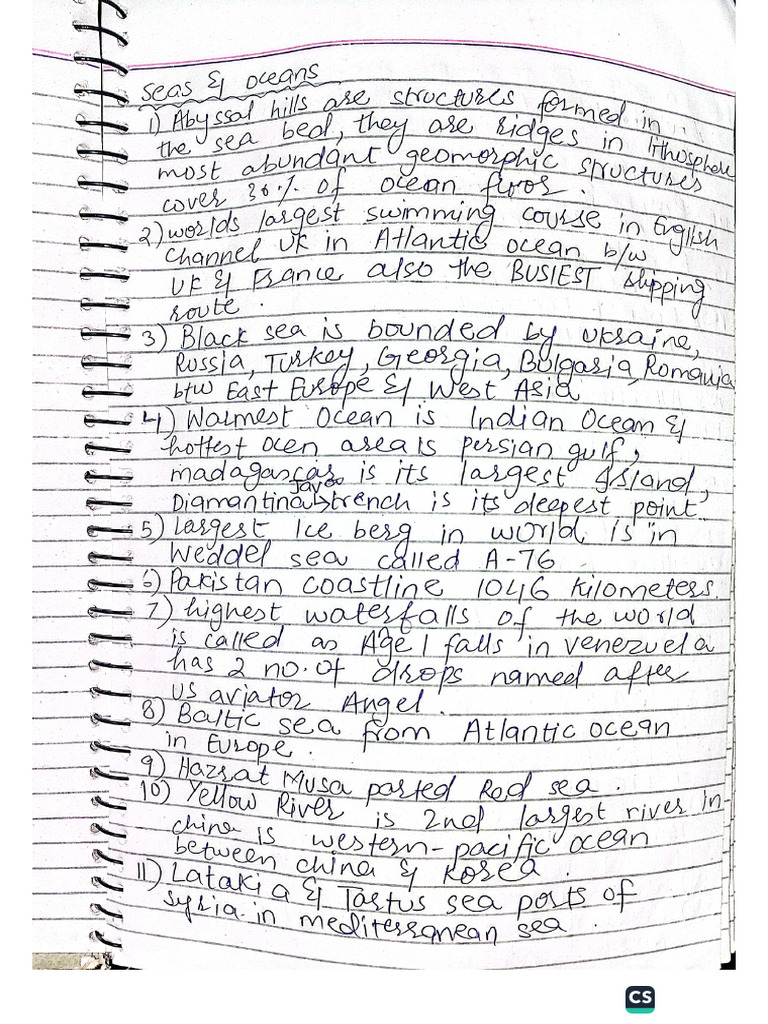 Seas & Oceans
1) Abyssal hills are structures formed in
the sea bed, they are ridges in lithosphere
most abundant geomorphic structures
cover 30% of ocean floor.
2) worlds largest swimming course in English
channel UK in Atlantic ocean b/w
UK & France also the BUSIEST shipping
route.
3) Black sea is bounded by ukraine,
Russia, Turkey, Georgia, Bulgaria, Romania
btw East Europe & West Asia
4) Warmest Ocean is Indian Ocean &
hottest ocen area is persian gulf,
madagascar is its largest Island,
Diamantina trench is its deepest point.
5) Largest Ice berg in world is in
Weddel sea called A-76
6) Pakistan coastline 1046 kilometers.
7) highest waterfalls of the world
is called as Agel falls in venezuela
has 2 no. of drops named after
US aviator Angel.
8) Baltic sea from Atlantic ocean
in Europe.
9) Hazrat Musa parted Red sea.
10) Yellow River is 2nd largest river in
china is western-pacific ocean
between china & Korea.
11) Latakia & Tartus sea ports of
syria in mediterranean sea.
CS